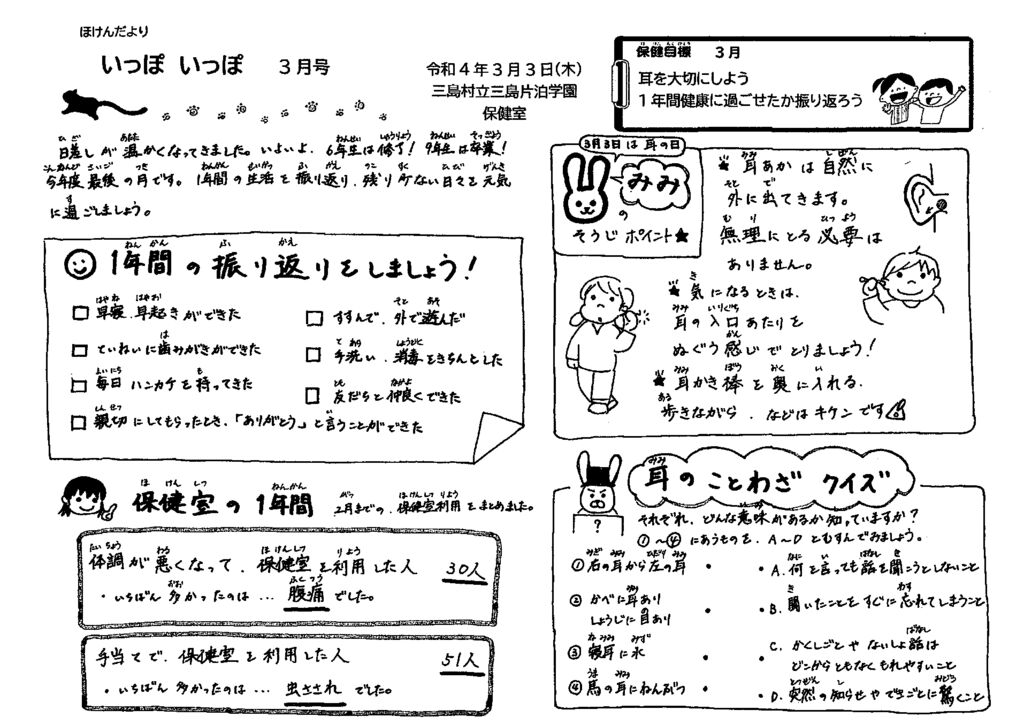 ほけんだより
いっぽ いっぽ 3月号
令和4年3月3日(木)
三島村立三島片泊学園
保健室
保健目標 3月
耳を大切にしよう
1年間健康に過ごせたか振り返ろう
日差しが温かくなってきました。いよいよ、6年生は修了！9年生は卒業！
今年度最後の月です。1年間の生活を振り返り、残り少ない日々を元気
に過ごしましょう。
1年間の振り返りをしましょう！
早寝、早起きができた
ていねいに歯みがきができた
毎日ハンカチを持ってきた
親切にしてもらったとき、「ありがとう」と言うことができた
すすんで、外で遊んだ
手洗い、消毒をきちんとした
友だちと仲良くできた
保健室の1年間
2月までの、保健室利用をまとめました。
体調が悪くなって、保健室を利用した人 30人
・いちばん多かったのは… 腹痛でした。
手当てで、保健室を利用した人 51人
・いちばん多かったのは… 虫さされでした。
3月3日は耳の日
みみ
の
そうじポイント★
★耳あかは自然に
外に出てきます。
無理にとる必要は
ありません。
★気になるときは、
耳の入口あたりを
ぬぐう感じでとりましょう！
★耳かき棒を奥に入れる、
歩きながら、などはキケンです
耳のことわざクイズ
?
それぞれ、どんな意味があるか知っていますか？
①～④にあうものを、A～Dとむすんでみましょう。
①右の耳から左の耳 ・
②かべに耳あり
しょうじに目あり ・
③寝耳に水 ・
④馬の耳にねんぶつ ・
・ A. 何と言っても話を聞こうとしないこと
・ B. 聞いたことをすぐに忘れてしまうこと
・ C. かくしごとやないしょ話は
どこからともなくもれやすいこと
・ D. 突然の知らせやできごとに驚くこと